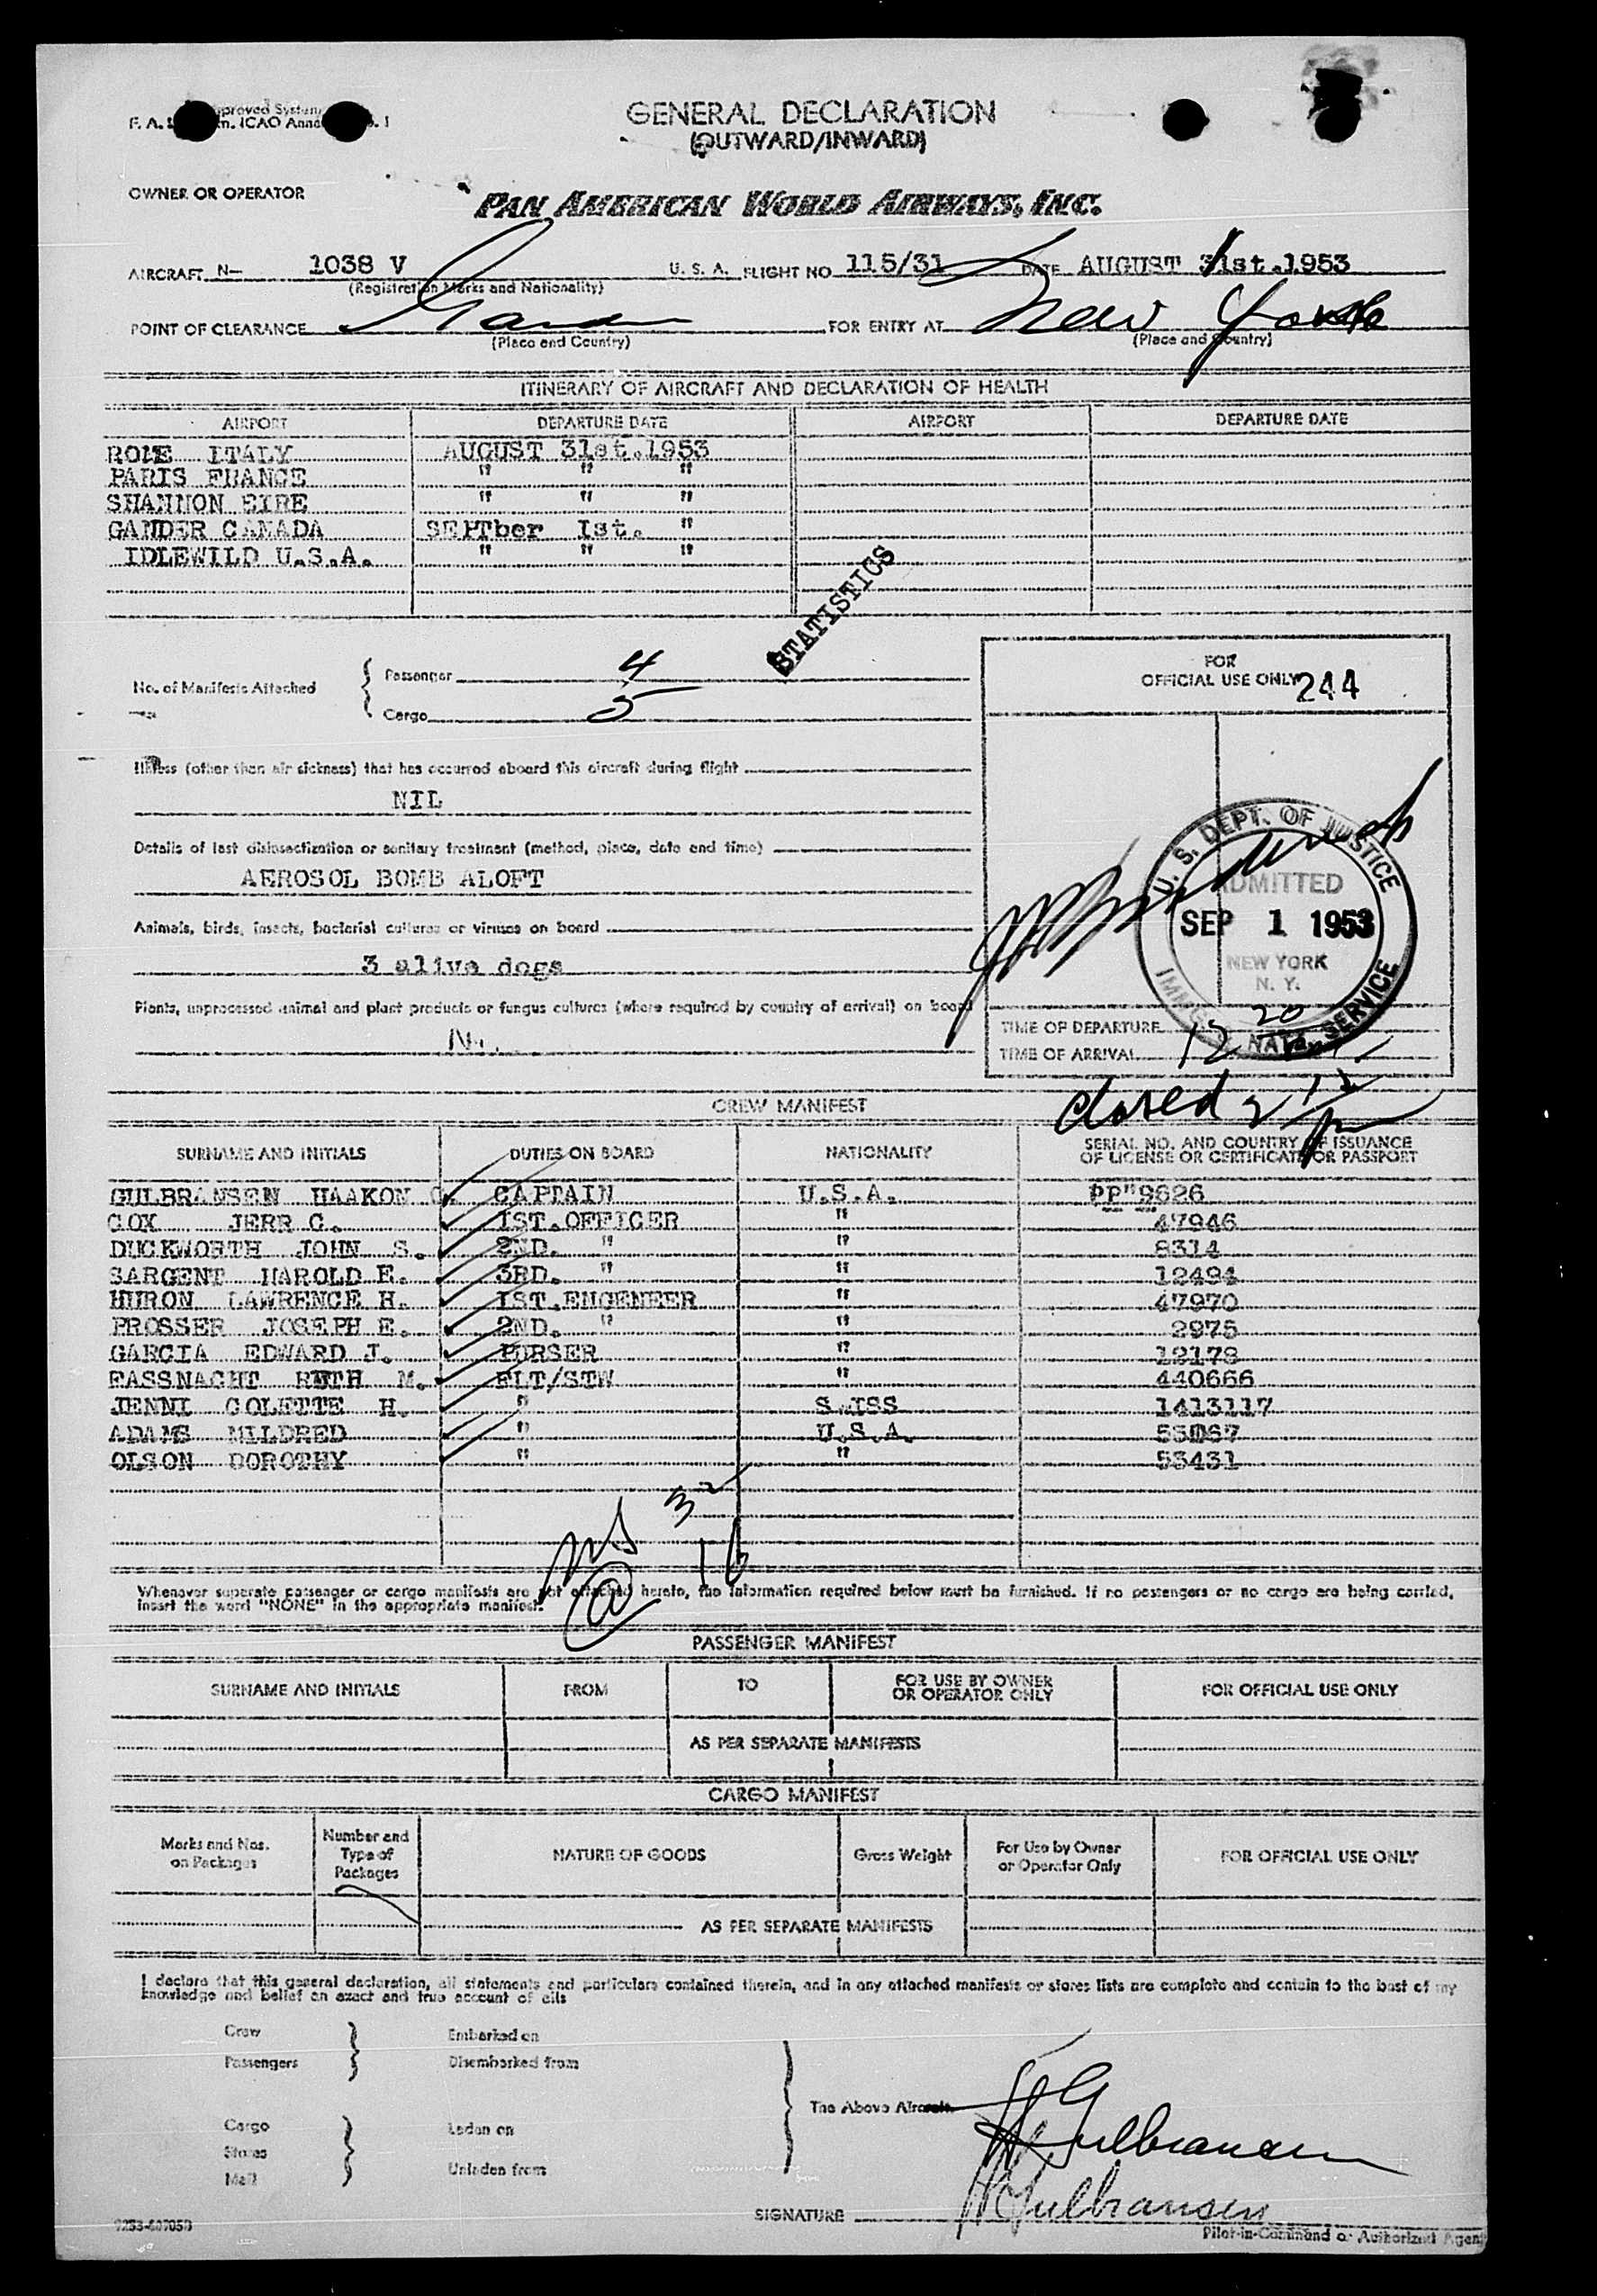 GENERAL DECLARATION
(OUTWARD/INWARD)
OWNER OR OPERATOR
PAN AMERICAN WORLD AIRWAYS, INC.
AIRCRAFT N— 1038 V U. S. A. FLIGHT NO 115/31 DATE AUGUST 31st.1953
(Registration Marks and Nationality)
POINT OF CLEARANCE Gander FOR ENTRY AT New York
(Place and Country) (Place and Country)
ITINERARY OF AIRCRAFT AND DECLARATION OF HEALTH
AIRPORT DEPARTURE DATE AIRPORT DEPARTURE DATE
ROME ITALY AUGUST 31st.1953
PARIS FRANCE " " "
SHANNON EIRE " " "
GANDER CANADA SEPTber Ist. "
IDLEWILD U.S.A. " " "
STATISTICS
No. of Manifests Attached
Passenger 4
Cargo 5
FOR
OFFICIAL USE ONLY 244
Illness (other than air sickness) that has occurred aboard this aircraft during flight
NIL
Details of last disinsectization or sanitary treatment (method, place, date and time)
AEROSOL BOMB ALOFT
Animals, birds, insects, bacterial cultures or viruses on board
3 alive dogs
Plants, unprocessed animal and plant products or fungus cultures (where required by country of arrival) on board
U. S. DEPT. OF JUSTICE
ADMITTED
SEP 1 1953
NEW YORK
N. Y.
IMMIG. NATZ. SERVICE
TIME OF DEPARTURE
TIME OF ARRIVAL 12 20
closed 2
CREW MANIFEST
SURNAME AND INITIALS DUTIES ON BOARD NATIONALITY SERIAL NO. AND COUNTRY OF ISSUANCE
OF LICENSE OR CERTIFICATE OR PASSPORT
GULBRANSEN HAAKON G. CAPTAIN U.S.A. PP"9626
COX JERR C. IST.OFFICER " 47946
DUCKWORTH JOHN S. 2ND. " " 8314
SARGENT HAROLD E. 3RD. " " 12494
HURON LAWRENCE H. IST.ENGENEER " 47970
PROSSER JOSEPH E. 2ND. " " 2975
GARCIA EDWARD J. PURSER " 12178
FASSNACHT RUTH M. FLT/STW " 440666
JENNI COLETTE H. " SWISS 1413117
ADAMS MILDRED " U.S.A.
OLSON DOROTHY " " 53431
Whenever separate passenger or cargo manifests are not attached hereto, the information required below must be furnished. If no passengers or no cargo are being carried,
insert the word "NONE" in the appropriate manifest.
PASSENGER MANIFEST
SURNAME AND INITIALS FROM TO FOR USE BY OWNER
OR OPERATOR ONLY FOR OFFICIAL USE ONLY
AS PER SEPARATE MANIFESTS
CARGO MANIFEST
Marks and Nos.
on Packages Number and
Type of
Packages NATURE OF GOODS Gross Weight For Use by Owner
or Operator Only FOR OFFICIAL USE ONLY
AS PER SEPARATE MANIFESTS
I declare that this general declaration, all statements and particulars contained therein, and in any attached manifests or stores lists are complete and contain to the best of my
knowledge and belief an exact and true account of all:
Crew Embarked on
Passengers Disembarked from
The Above Aircraft
Cargo Laden on
Stores
Mail Unladen from
H G Gulbransen
SIGNATURE H Gulbransen
Pilot-in-Command or Authorized Agent